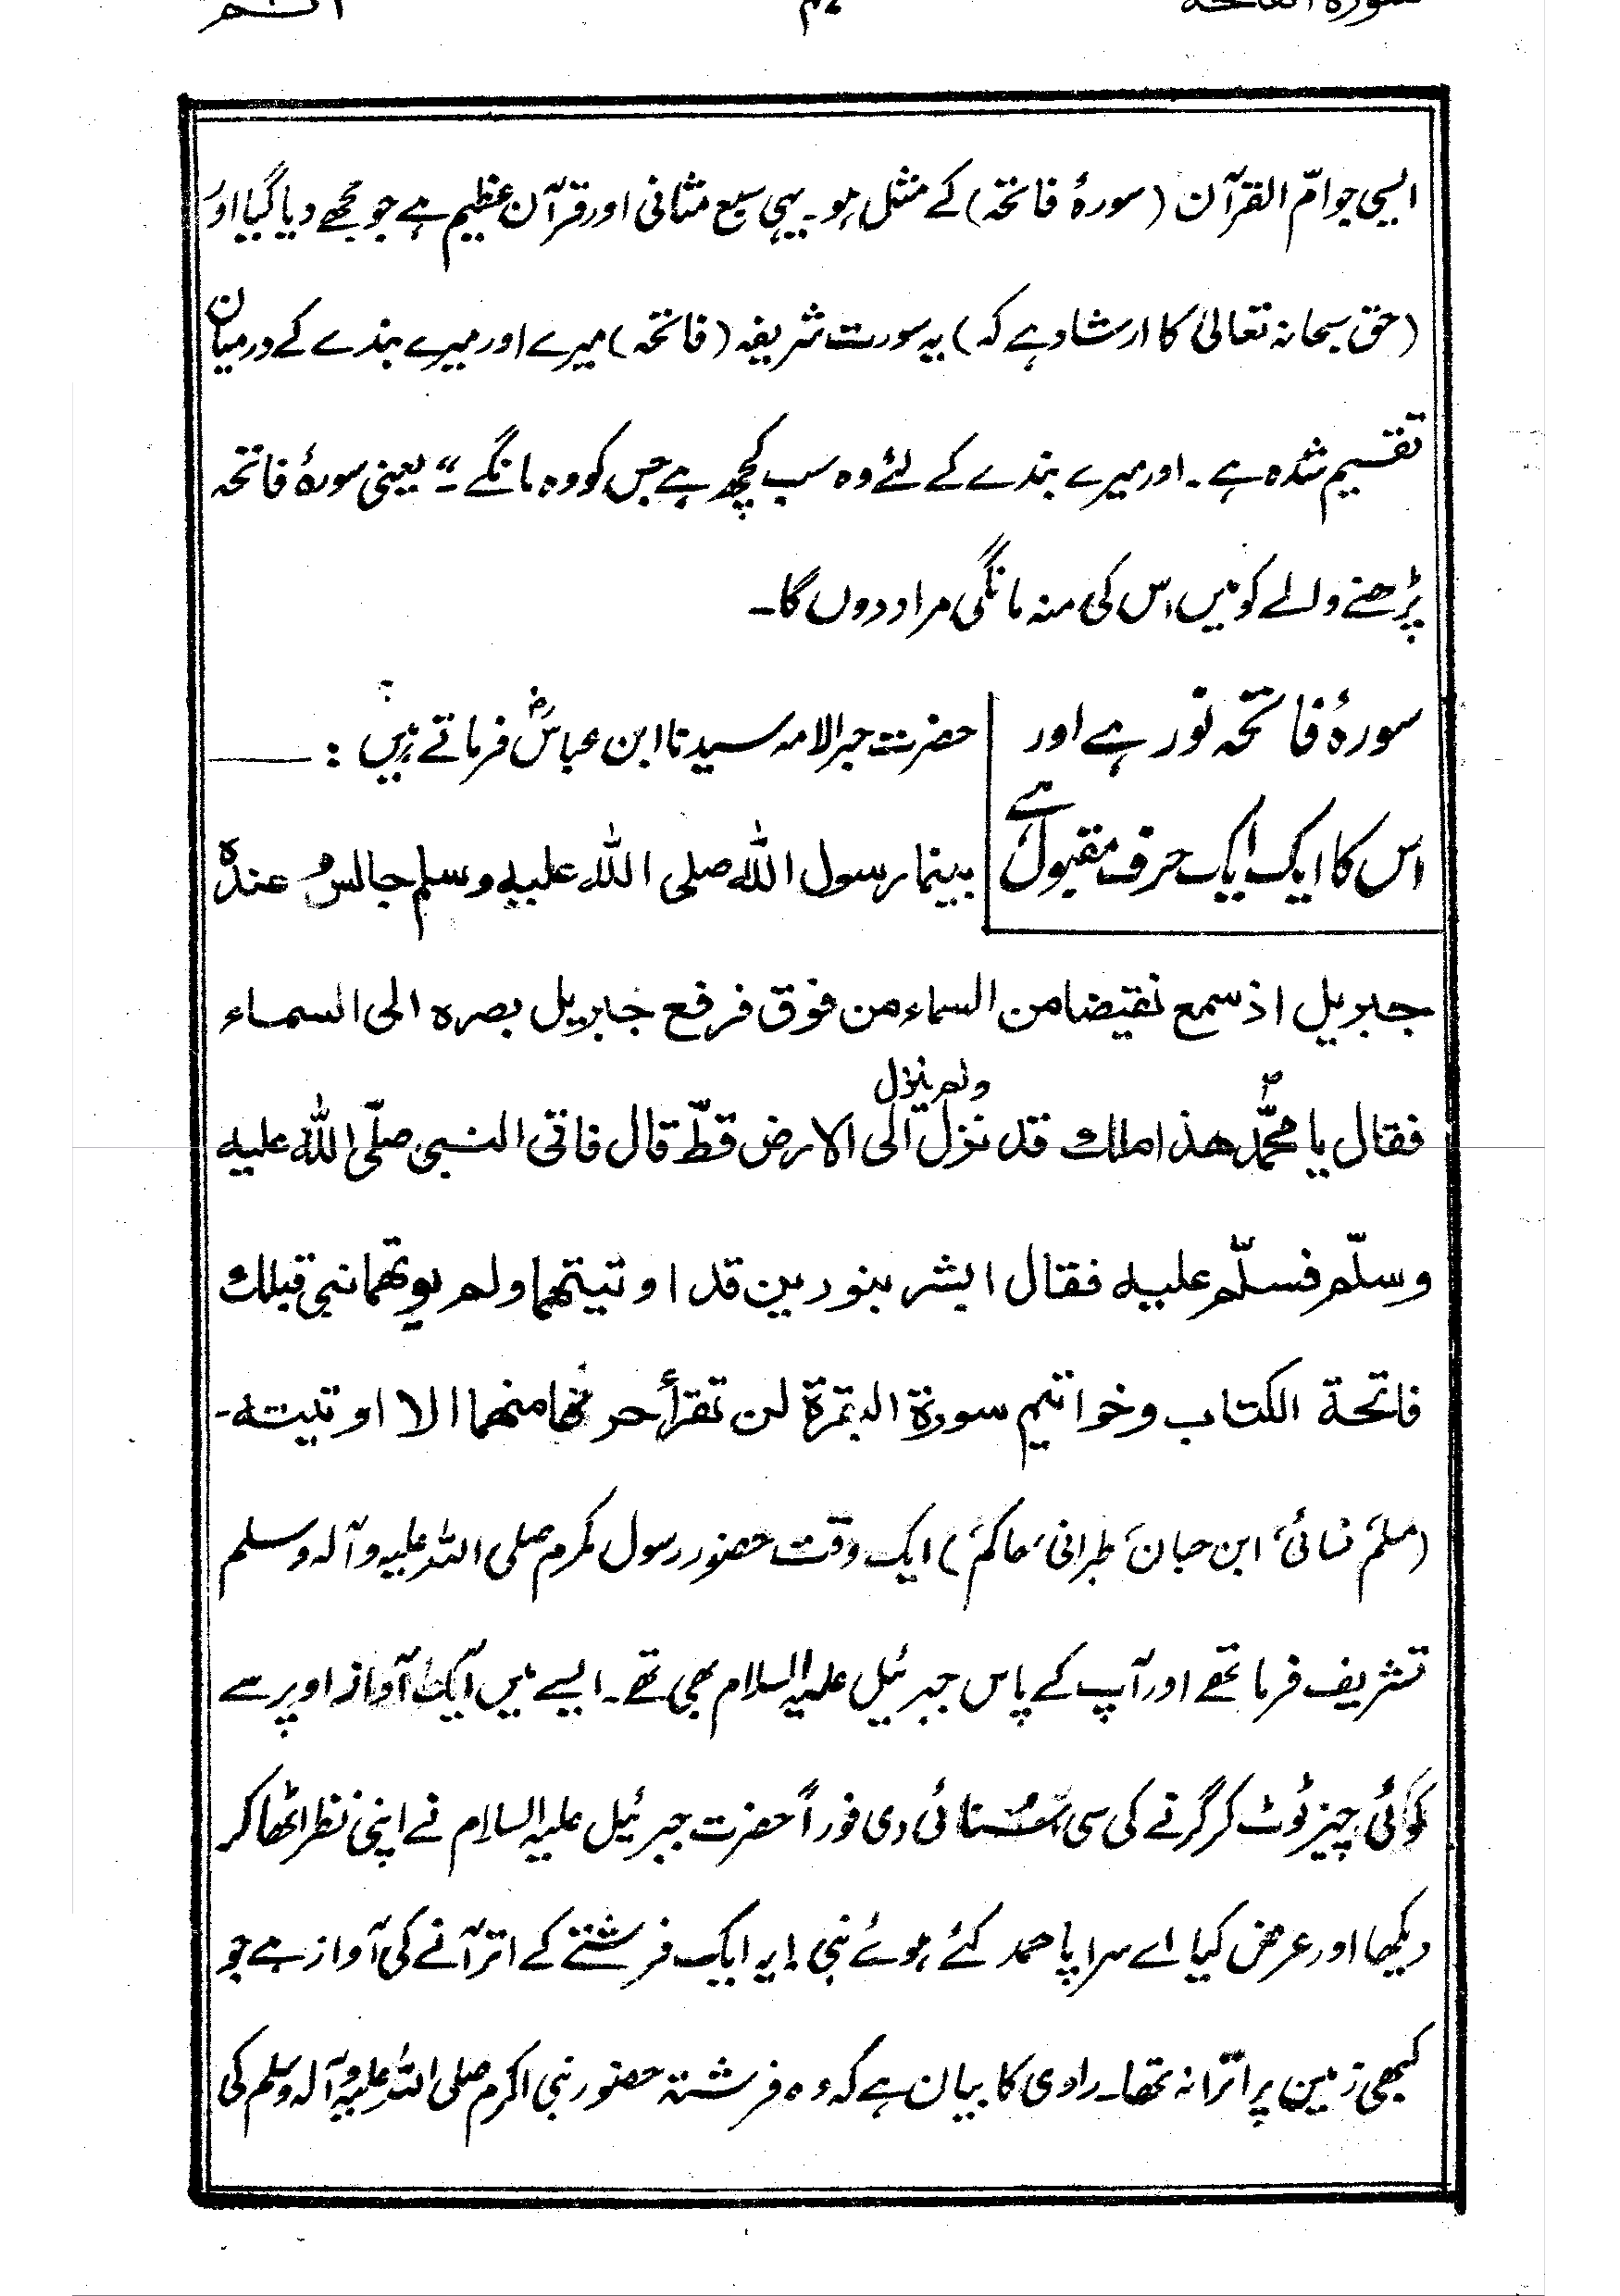 سورۃ الفاتحۃ
ایسی جو امّ القرآن (سورۂ فاتحہ) کے مثل ہو۔ یہی سبع مثانی اور قرآن عظیم ہے جو مجھے دیا گیا اور
(حق سبحانہ تعالیٰ کا ارشاد ہے کہ) یہ سورت شریفہ (فاتحہ) میرے اور میرے بندے کے درمیان
تقسیم شدہ ہے۔ اور میرے بندے کے لئے وہ سب کچھ ہے جس کو وہ مانگے۔" یعنی سورۂ فاتحہ
پڑھنے والے کو میں اس کی منہ مانگی مراد دوں گا۔
سورۂ فاتحہ نور ہے اور
اس کا ایک ایک حرف مقبول ہے
حضرت حبر الامہ سیدنا ابن عباسؓ فرماتے ہیں :
بینما رسول اللہ صلی اللہ علیہ وسلم جالسٌ عندہٗ
جبریل اذ سمع نقیضا من السماء من فوق فرفع جبریل بصرہ الی السماء
فقال یا محمّدؐ ھذا ملك قد نزل ولم ینزل الی الارض قطّ قال فاتی النبی صلّی اللہ علیہ
وسلّم فسلّم علیہ فقال ابشر بنورین قد اوتیتھما ولم یوتھما نبی قبلك
فاتحۃ الکتاب وخواتیم سورۃ البقرۃ لن تقرأ حرفا منھما الا اوتیتہ۔
(مسلم، نسائی، ابن حبان، طبرانی، حاکم) ایک وقت حضور رسول مکرم صلی اللہ علیہ وآلہ وسلم
تشریف فرما تھے اور آپ کے پاس جبرئیل علیہ السلام بھی تھے۔ ایسے میں ایک آواز اوپر سے
کوئی چیز ٹوٹ کر گرنے کی سی سنائی دی فوراً حضرت جبرئیل علیہ السلام نے اپنی نظر اٹھا کر
دیکھا اور عرض کیا اے سراپا حمد کئے ہوئے نبی! یہ ایک فرشتے کے اتر آنے کی آواز ہے جو
کبھی زمین پر اترا نہ تھا۔ راوی کا بیان ہے کہ وہ فرشتہ حضور نبی اکرم صلی اللہ علیہ وآلہ وسلم کی